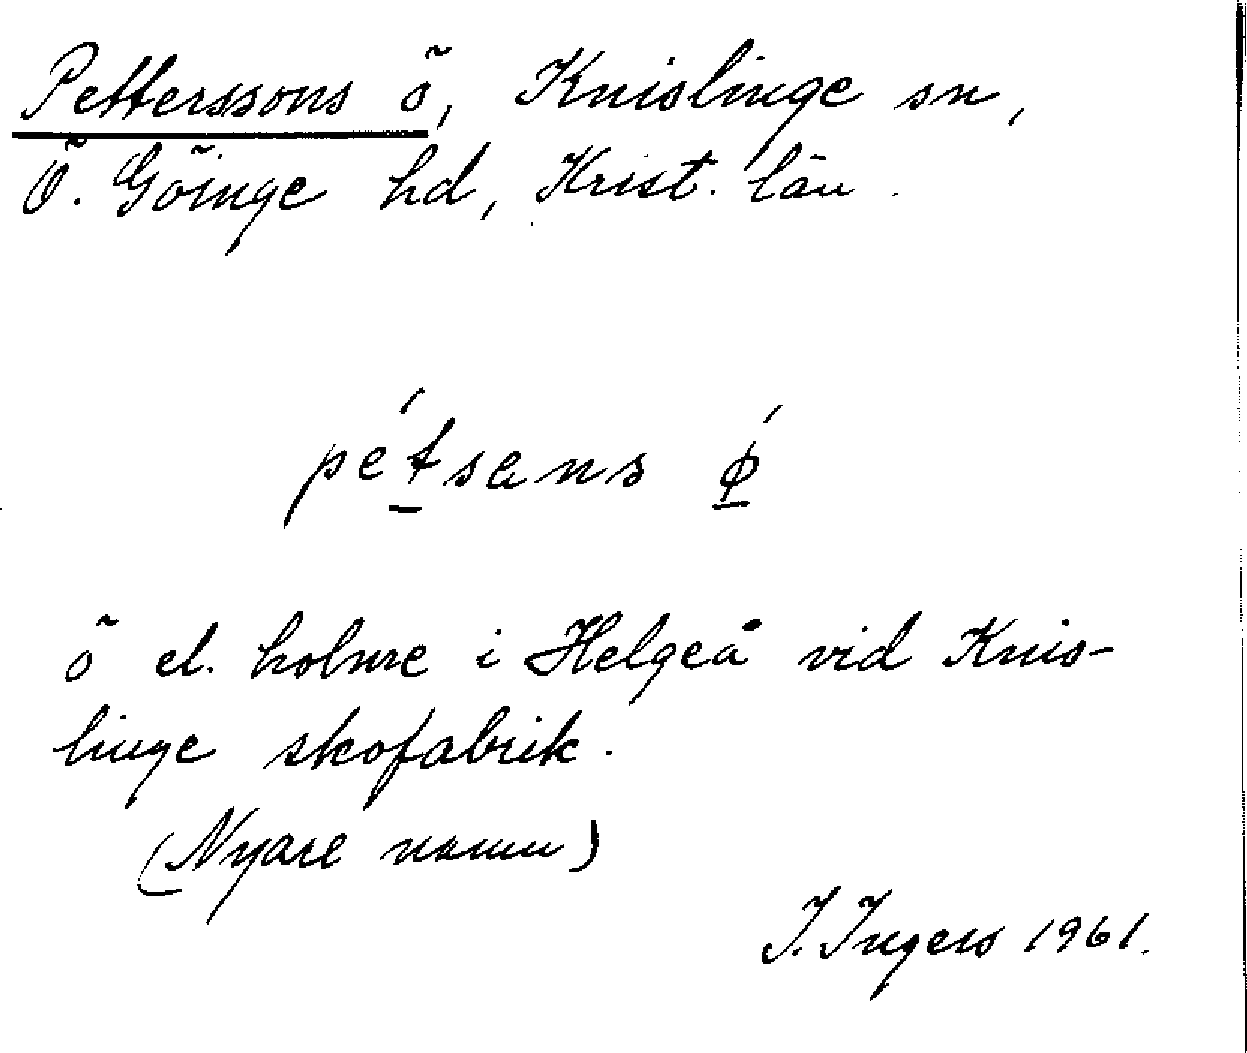 Pettersons ö, Knislinge sn,
Ö. Göinge hd, Krist. län.
pétsans ǿ
ö el. holme i Helgeå vid Knis-
linge skofabrik.
(Nyare namn)
I. Ingers 1961.